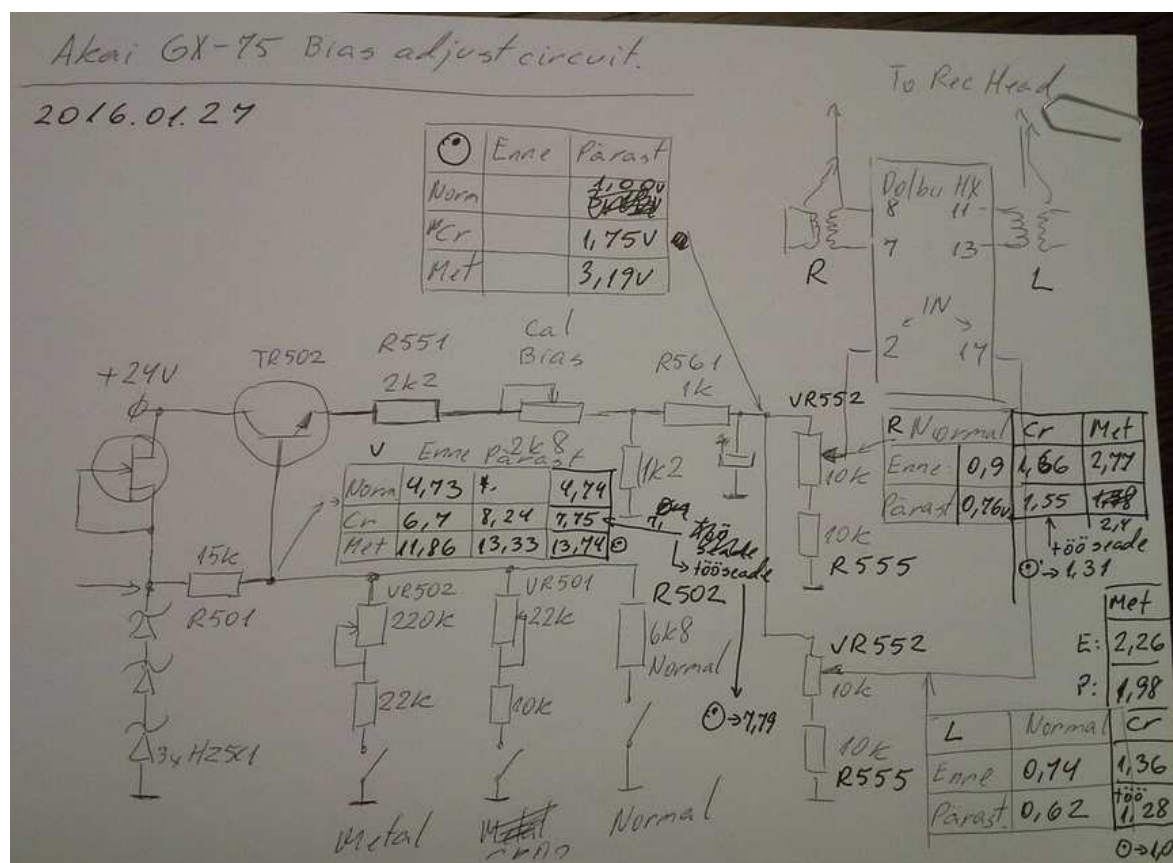 Akai GX-75 Bias adjust circuit.
2016.01.27
To Rec Head
Enne Pärast
Norm 1,00v
Cr 1,75V
Met 3,19V
Dolby HX
8 11
7 13
R
L
IN
2 17
+24V
TR502
R551
2k2
Cal
Bias
2k8
R561
1k
1k2
VR552
10k
10k
R555
V Enne Pärast
Norm 4,73 4,74
Cr 6,7 8,24 7,75
Met 11,86 13,33 13,74
tööseade
R Normal Cr Met
Enne 0,9 1,66 2,77
Pärast 0,76v 1,55
2,4
tööseade
→1,31
15k
R501
VR502
220k
22k
Metal
VR501
22k
10k
R502
6k8
Normal
Normal
→7,79
3xHZ5C1
VR552
10k
10k
R555
Met
E: 2,26
P: 1,98
L Normal Cr
Enne 0,74 1,36
Pärast 0,62 töö 1,28